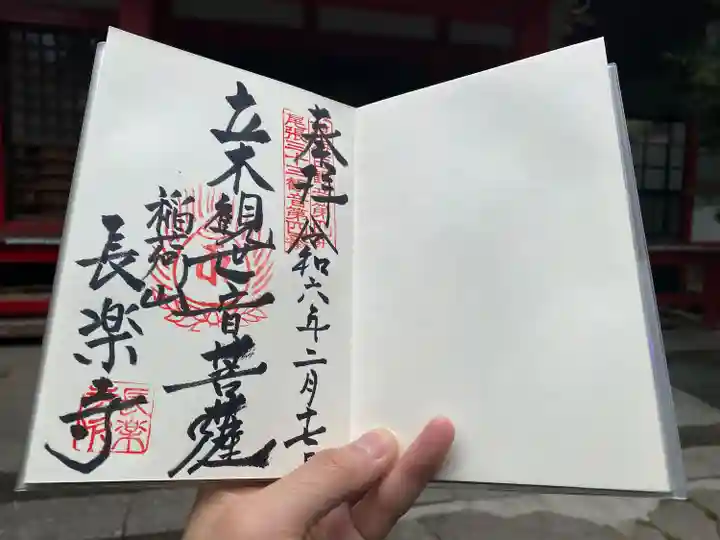 奉拝 令和六年二月十七日
尾張三十三観音第四番
立木観世音菩薩
稲荷山
長楽寺
長楽